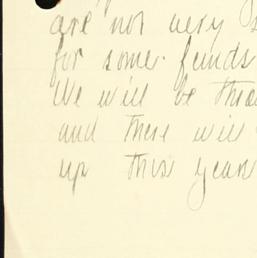 are not very
for some funds
We will be
and there will
up this year